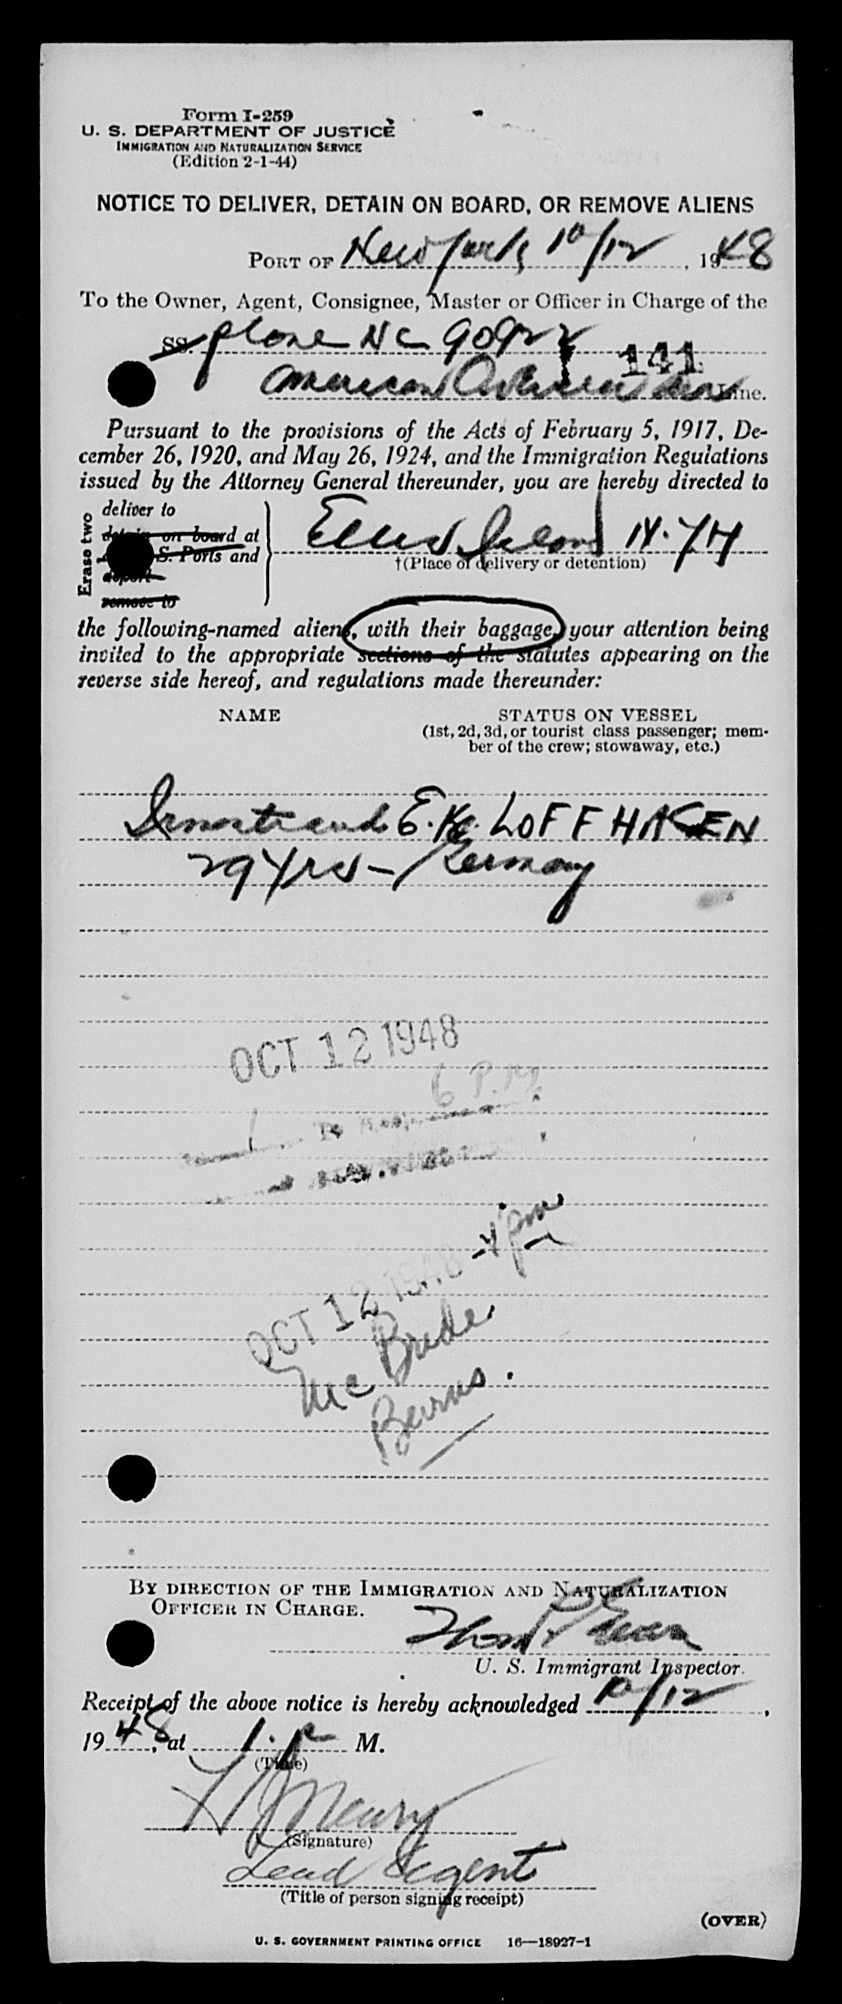 Form I-259
U. S. DEPARTMENT OF JUSTICE
IMMIGRATION AND NATURALIZATION SERVICE
(Edition 2-1-44)
NOTICE TO DELIVER, DETAIN ON BOARD, OR REMOVE ALIENS
PORT OF New York 10/12, 1948
To the Owner, Agent, Consignee, Master or Officer in Charge of the
SS. plane NC 90922
141
American Overseas Line.
Pursuant to the provisions of the Acts of February 5, 1917, De-
cember 26, 1920, and May 26, 1924, and the Immigration Regulations
issued by the Attorney General thereunder, you are hereby directed to
Erase two
deliver to
detain on board at
S. Ports and
deport
remove to
Ellis Island N.Y.H
†(Place of delivery or detention)
the following-named aliens, with their baggage, your attention being
invited to the appropriate sections of the statutes appearing on the
reverse side hereof, and regulations made thereunder:
NAME
STATUS ON VESSEL
(1st, 2d, 3d, or tourist class passenger; mem-
ber of the crew; stowaway, etc.)
E. K. LOFFHAGEN
29 yrs - Germany
OCT 12 1948
6 P.M.
OCT 12 1948 - 4 pm
McBride
Burns.
BY DIRECTION OF THE IMMIGRATION AND NATURALIZATION
OFFICER IN CHARGE.
U. S. Immigrant Inspector.
Receipt of the above notice is hereby acknowledged 10/12,
1948, at 1. P M.
(Time)
(Signature)
Lead Agent
(Title of person signing receipt)
(OVER)
U. S. GOVERNMENT PRINTING OFFICE 16—18927-1